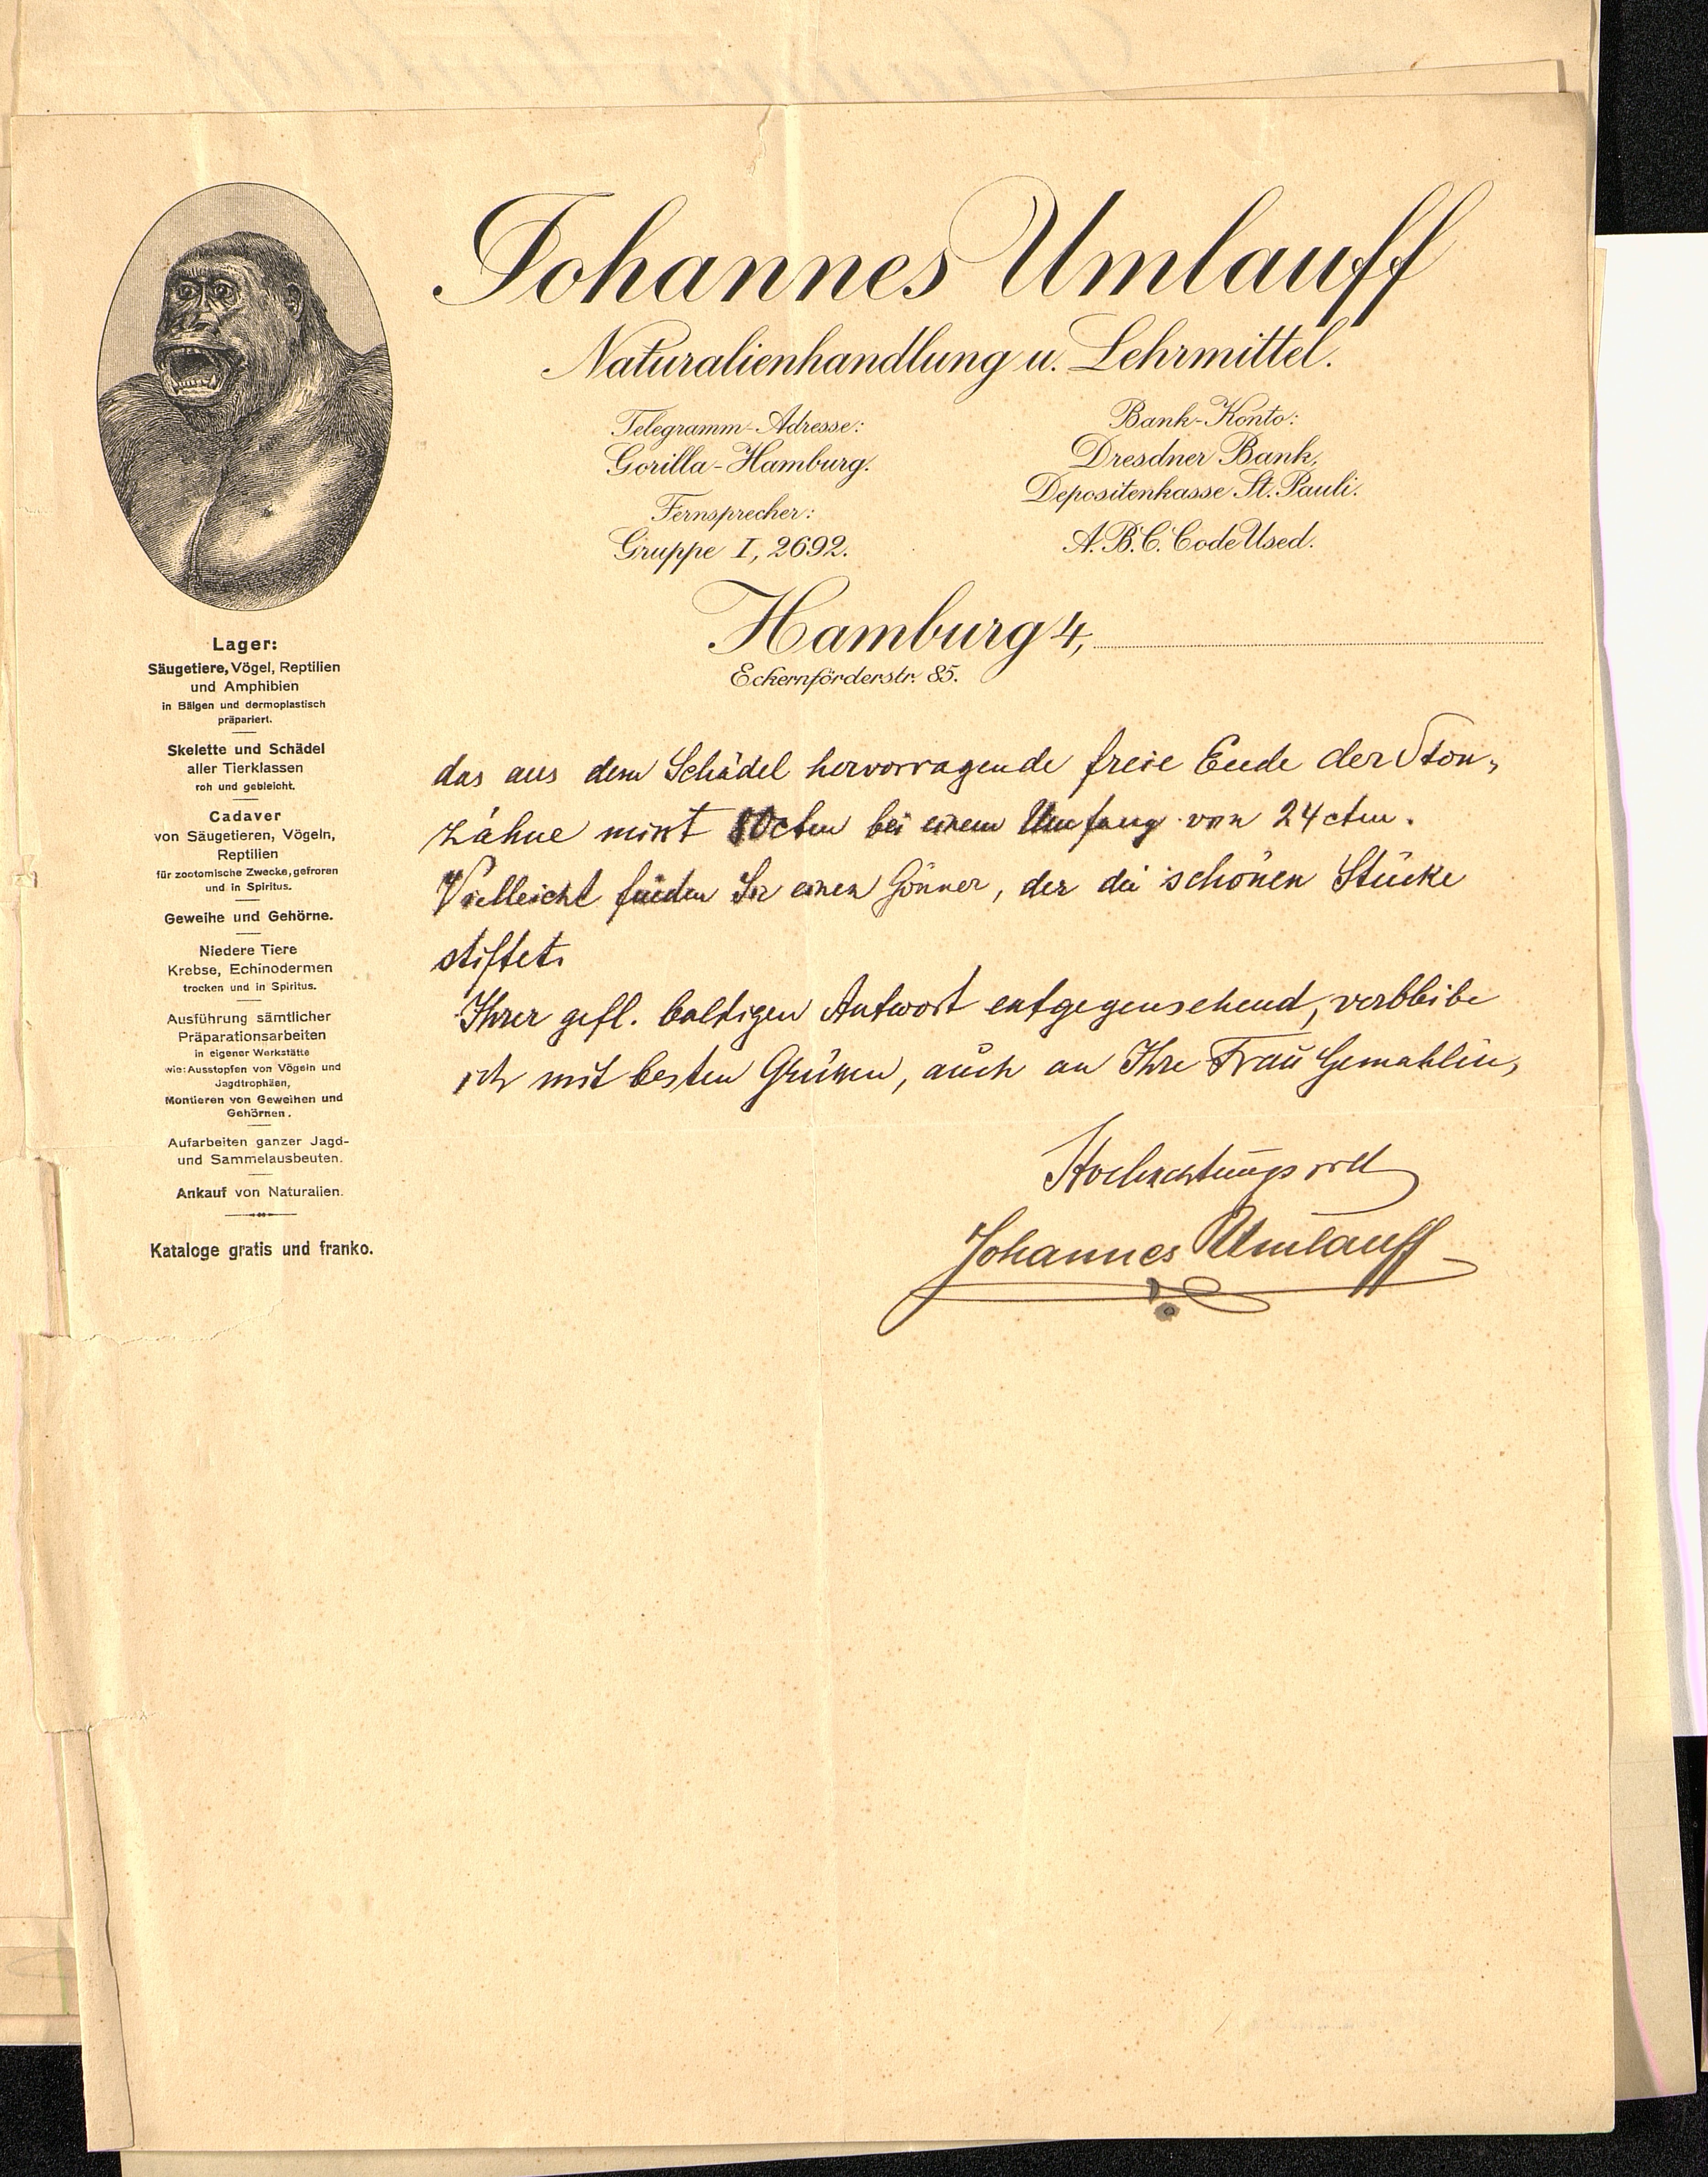 Johannes Umlauff
Naturalienhandlung u. Lehrmittel.
Telegramm-Adresse:
Gorilla-Hamburg.
Fernsprecher:
Gruppe I, 2692.
Bank-Konto:
Dresdner Bank,
Depositenkasse St. Pauli.
A.B.C. Code Used.
Hamburg 4,
Eckernförderstr. 85.
Lager:
Säugetiere, Vögel, Reptilien
und Amphibien
in Bälgen und dermoplastisch
präpariert.
Skelette und Schädel
aller Tierklassen
roh und gebleicht.
Cadaver
von Säugetieren, Vögeln,
Reptilien
für zootomische Zwecke, gefroren
und in Spiritus.
Geweihe und Gehörne.
Niedere Tiere
Krebse, Echinodermen
trocken und in Spiritus.
Ausführung sämtlicher
Präparationsarbeiten
in eigener Werkstätte
wie: Ausstopfen von Vögeln und
Jagdtrophäen,
Montieren von Geweihen und
Gehörnen.
Aufarbeiten ganzer Jagd-
und Sammelausbeuten.
Ankauf von Naturalien.
Kataloge gratis und franko.
das aus dem Schädel hervorragende freie Ende der Stoß-
zähne misst ctm bei einem Umfang von 24 ctm.
Vielleicht finden Sie einen Gönner, der die schönen Stücke
stiftet.
Ihrer gefl. baldigen Antwort entgegensehend, verbleibe
ich mit besten Grüßen, auch an Ihre Frau Gemahlin,
Hochachtungsvoll
Johannes Umlauff